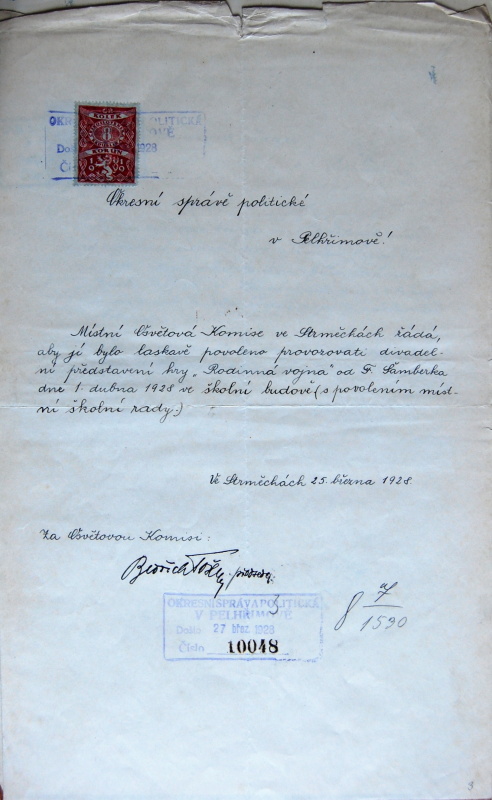 OKRESNÍ SPRÁVA POLITICKÁ
Došlo 1928
Č S
KOLEK
8
KORUN
Okresní správě politické
v Pelhřimově!
Místní Osvětová Komise ve Strměchách řádá,
aby jí bylo laskavě povoleno provozovati divadel-
ní představení hry „Rodinná vojna" od F. Šamberka
dne 1. dubna 1928 ve školní budově (s povolením míst-
ní školní rady.)
Ve Strměchách 25. března 1928.
Za Osvětovou Komisi:
Bedřich předseda.
OKRESNÍ SPRÁVA POLITICKÁ
V PELHŘIMOVĚ
Došlo 27 břez 1928
Číslo 10048
8
1590
3